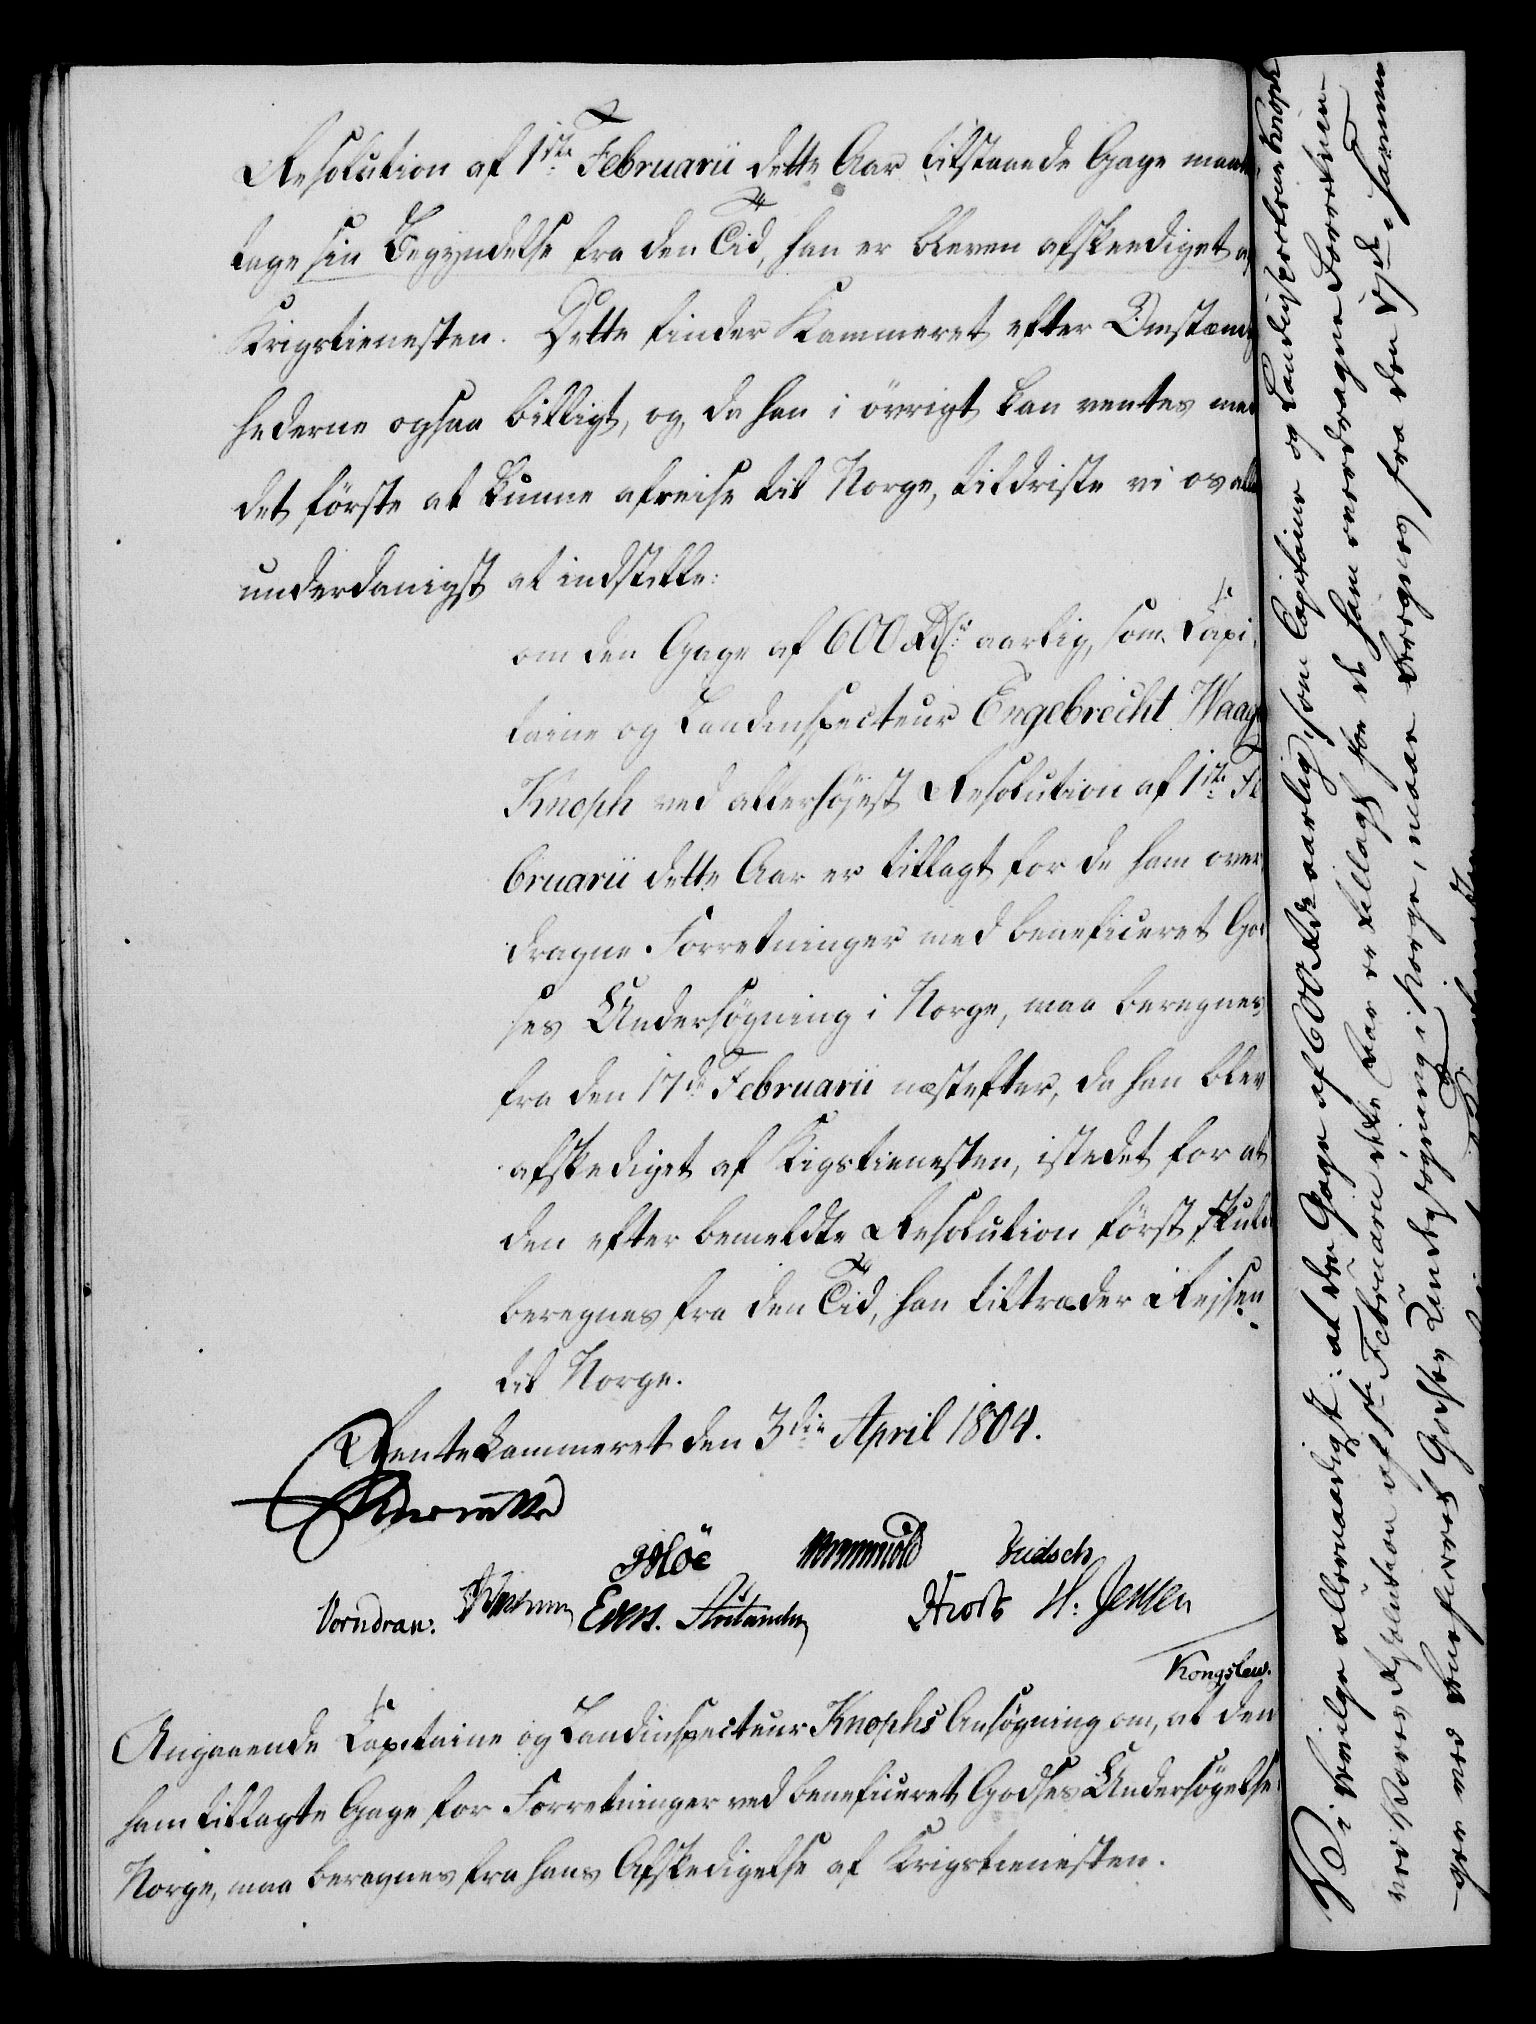 Resolution af 1ste Februarii dette Aar tilstaaede Gage maatte
tage sin Begyndelse fra den Tid, han er bleven afskeediget af
Krigstienesten. Dette finder Kammeret efter Omstændig
hederne ogsaa billigt, og, da han i övrigt kan ventes med
det förste at kunne afreise til Norge, tildriste vi os aller
underdanigst at indstille:
om den Gage af 600 Rdlr aarlig, som Capi-
taine og Landinspecteur Engebrecht Waage
Knoph ved allerhöjest Resolution af 1ste Fe
bruarii dette Aar er tillagt for de ham over
dragne Forretninger med beneficeret God
ses Undersøgning i Norge, maa beregnes
fra den 17de Februarii næstefter, da han blev
afskediget af Kigstienesten, istedet for at
den efter bemeldte Resolution först skulde
beregnes fra den Tid, han tiltræder Reisen
til Norge.
Rentekammeret den 3die April 1804.
Vorndran. Evers. Hiorth H: Jensen
Kongslew.
Angaaende Capitaine og Landinspecteur Knophs Ansøgning om, at den
ham tillagte Gage for Forretninger ved beneficeret Godses Undersögelse i
Norge, maa beregnes fra hans Afskedigelse af Krigstienesten.
Vi bevilge allernaadigst: at den Gage af 600 Rdlr aarlig, som Capitaine og Landinspecteur Knoph
ved Vores Resolution af 1ste Februarii dette Aar er tillagt for de ham overdragne Forretnin-
ger med beneficeret Godses Undersögning i Norge, maae beregnes fra den 17de i samme